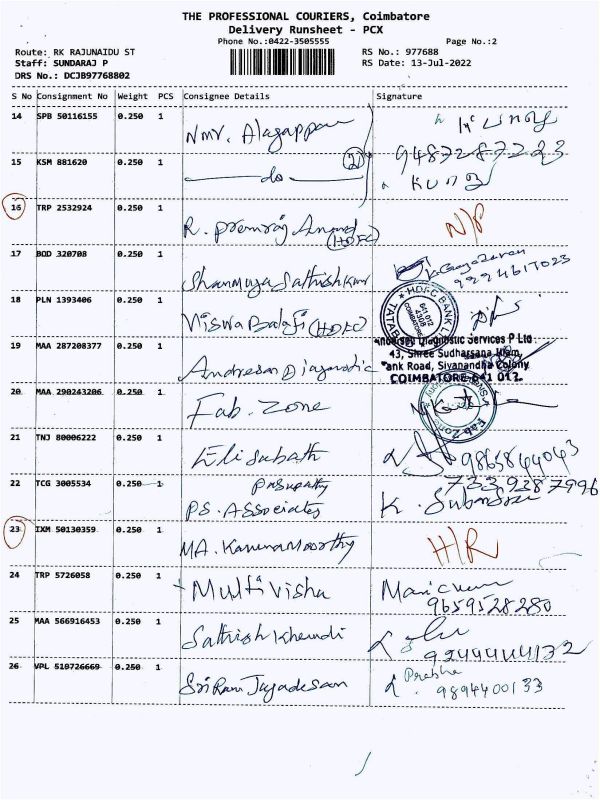 THE PROFESSIONAL COURIERS, Coimbatore
Delivery Runsheet - PCX
Phone No.:0422-3505555 Page No.:2
Route: RK RAJUNAIDU ST RS No.: 977688
Staff: SUNDARAJ P RS Date: 13-Jul-2022
DRS No.: DCJB97768802
S No Consignment No Weight PCS Consignee Details Signature
14 SPB 50116155 0.250 1 Nmr. Alagappan
9487287223
15 KSM 881620 0.250 1 do (2)
16 TRP 2532924 0.250 1 R. Premraj Anand (HDFC) N/P
17 BOD 320708 0.250 1 Shanmuga Sathishkumar
9224617023
18 PLN 1393406 0.250 1 Viswa Balaji (HDFC)
HDFC BANK L
641 012
COIMBATORE
TATABAD
19 MAA 287208377 0.250 1 Andresan Diagnostic
Diagnostic Services P Ltd
43, Shree Sudharsana
ank Road, Sivanandha Colony
COIMBATORE-641 012.
20 MAA 290243206 0.250 1 Fab. Zone
Fab Zone
21 TNJ 80006222 0.250 1 Elisabath 9865844043
22 TCG 3005534 0.250 1 Pasupathy 7339387996
PS. Associates K.
23 IXM 50130359 0.250 1 MA. Karunamoorthy H/R
24 TRP 5726058 0.250 1 Multi Visha
9659528280
25 MAA 566916453 0.250 1 Sathish
9244444132
26 VPL 510726669 0.250 1 Sri Ram Jayadesan Prabha
9894400133